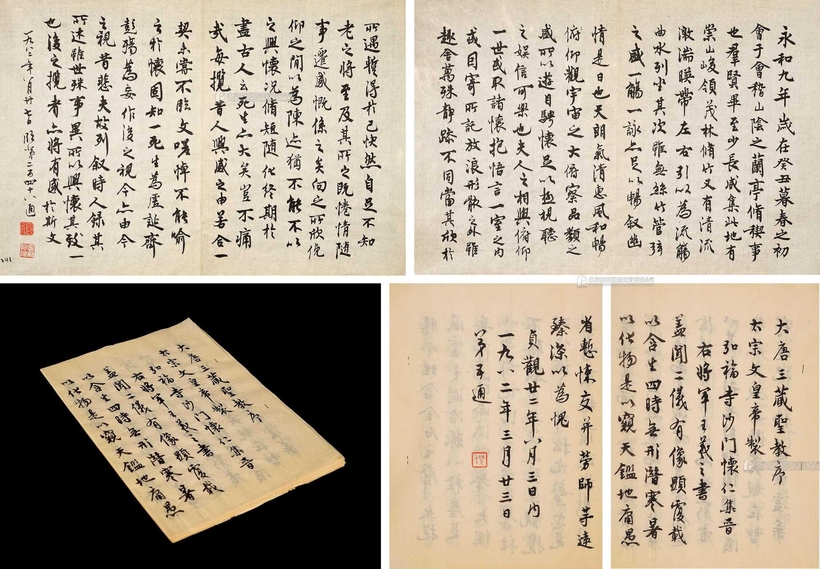 永和九年歲在癸丑暮春之初
會于會稽山陰之蘭亭脩稧事
也群賢畢至少長咸集此地有
崇山峻領茂林脩竹又有清流
激湍暎帶左右引以為流觴
曲水列坐其次雖無絲竹管弦
之盛一觴一詠亦足以暢叙幽
情是日也天朗氣清惠風和暢
俯仰觀宇宙之大俯察品類之
盛所以遊目騁懷足以極視聽
之娛信可樂也夫人之相與俯仰
一世或取諸懷抱悟言一室之內
或因寄所託放浪形骸之外雖
趣舍萬殊靜躁不同當其欣於
所遇暫得於己快然自足不知
老之將至及其所之既惓情隨
事遷感慨係之矣向之所欣俛
仰之間以為陳迹猶不能不以
之興懷況脩短隨化終期於
盡古人云死生亦大矣豈不痛
哉每攬昔人興感之由若合一
契未嘗不臨文嗟悼不能喻
之於懷固知一死生為虛誕齊
彭殤為妄作後之視今亦由今
之視昔悲夫故列叙時人錄其
所述雖世殊事異所以興懷其致一
也後之攬者亦將有感於斯文
一九八二年月廿日臨第二百四十通
大唐三藏聖教序
太宗文皇帝製
弘福寺沙門懷仁集晉
右將軍王羲之書
蓋聞二儀有像顯覆載
以含生四時無形潛寒暑
以化物是以窺天鑑地庸愚
省慙悚交并勞師等遠
臻深以為愧
貞觀廿二年八月三日內
一九八二年三月廿三日
第五通
大唐三藏聖教序
太宗文皇帝製
弘福寺沙門懷仁集晉
右將軍王羲之書
蓋聞二儀有像顯覆載
以含生四時無形潛寒暑
以化物是以窺天鑑地庸愚